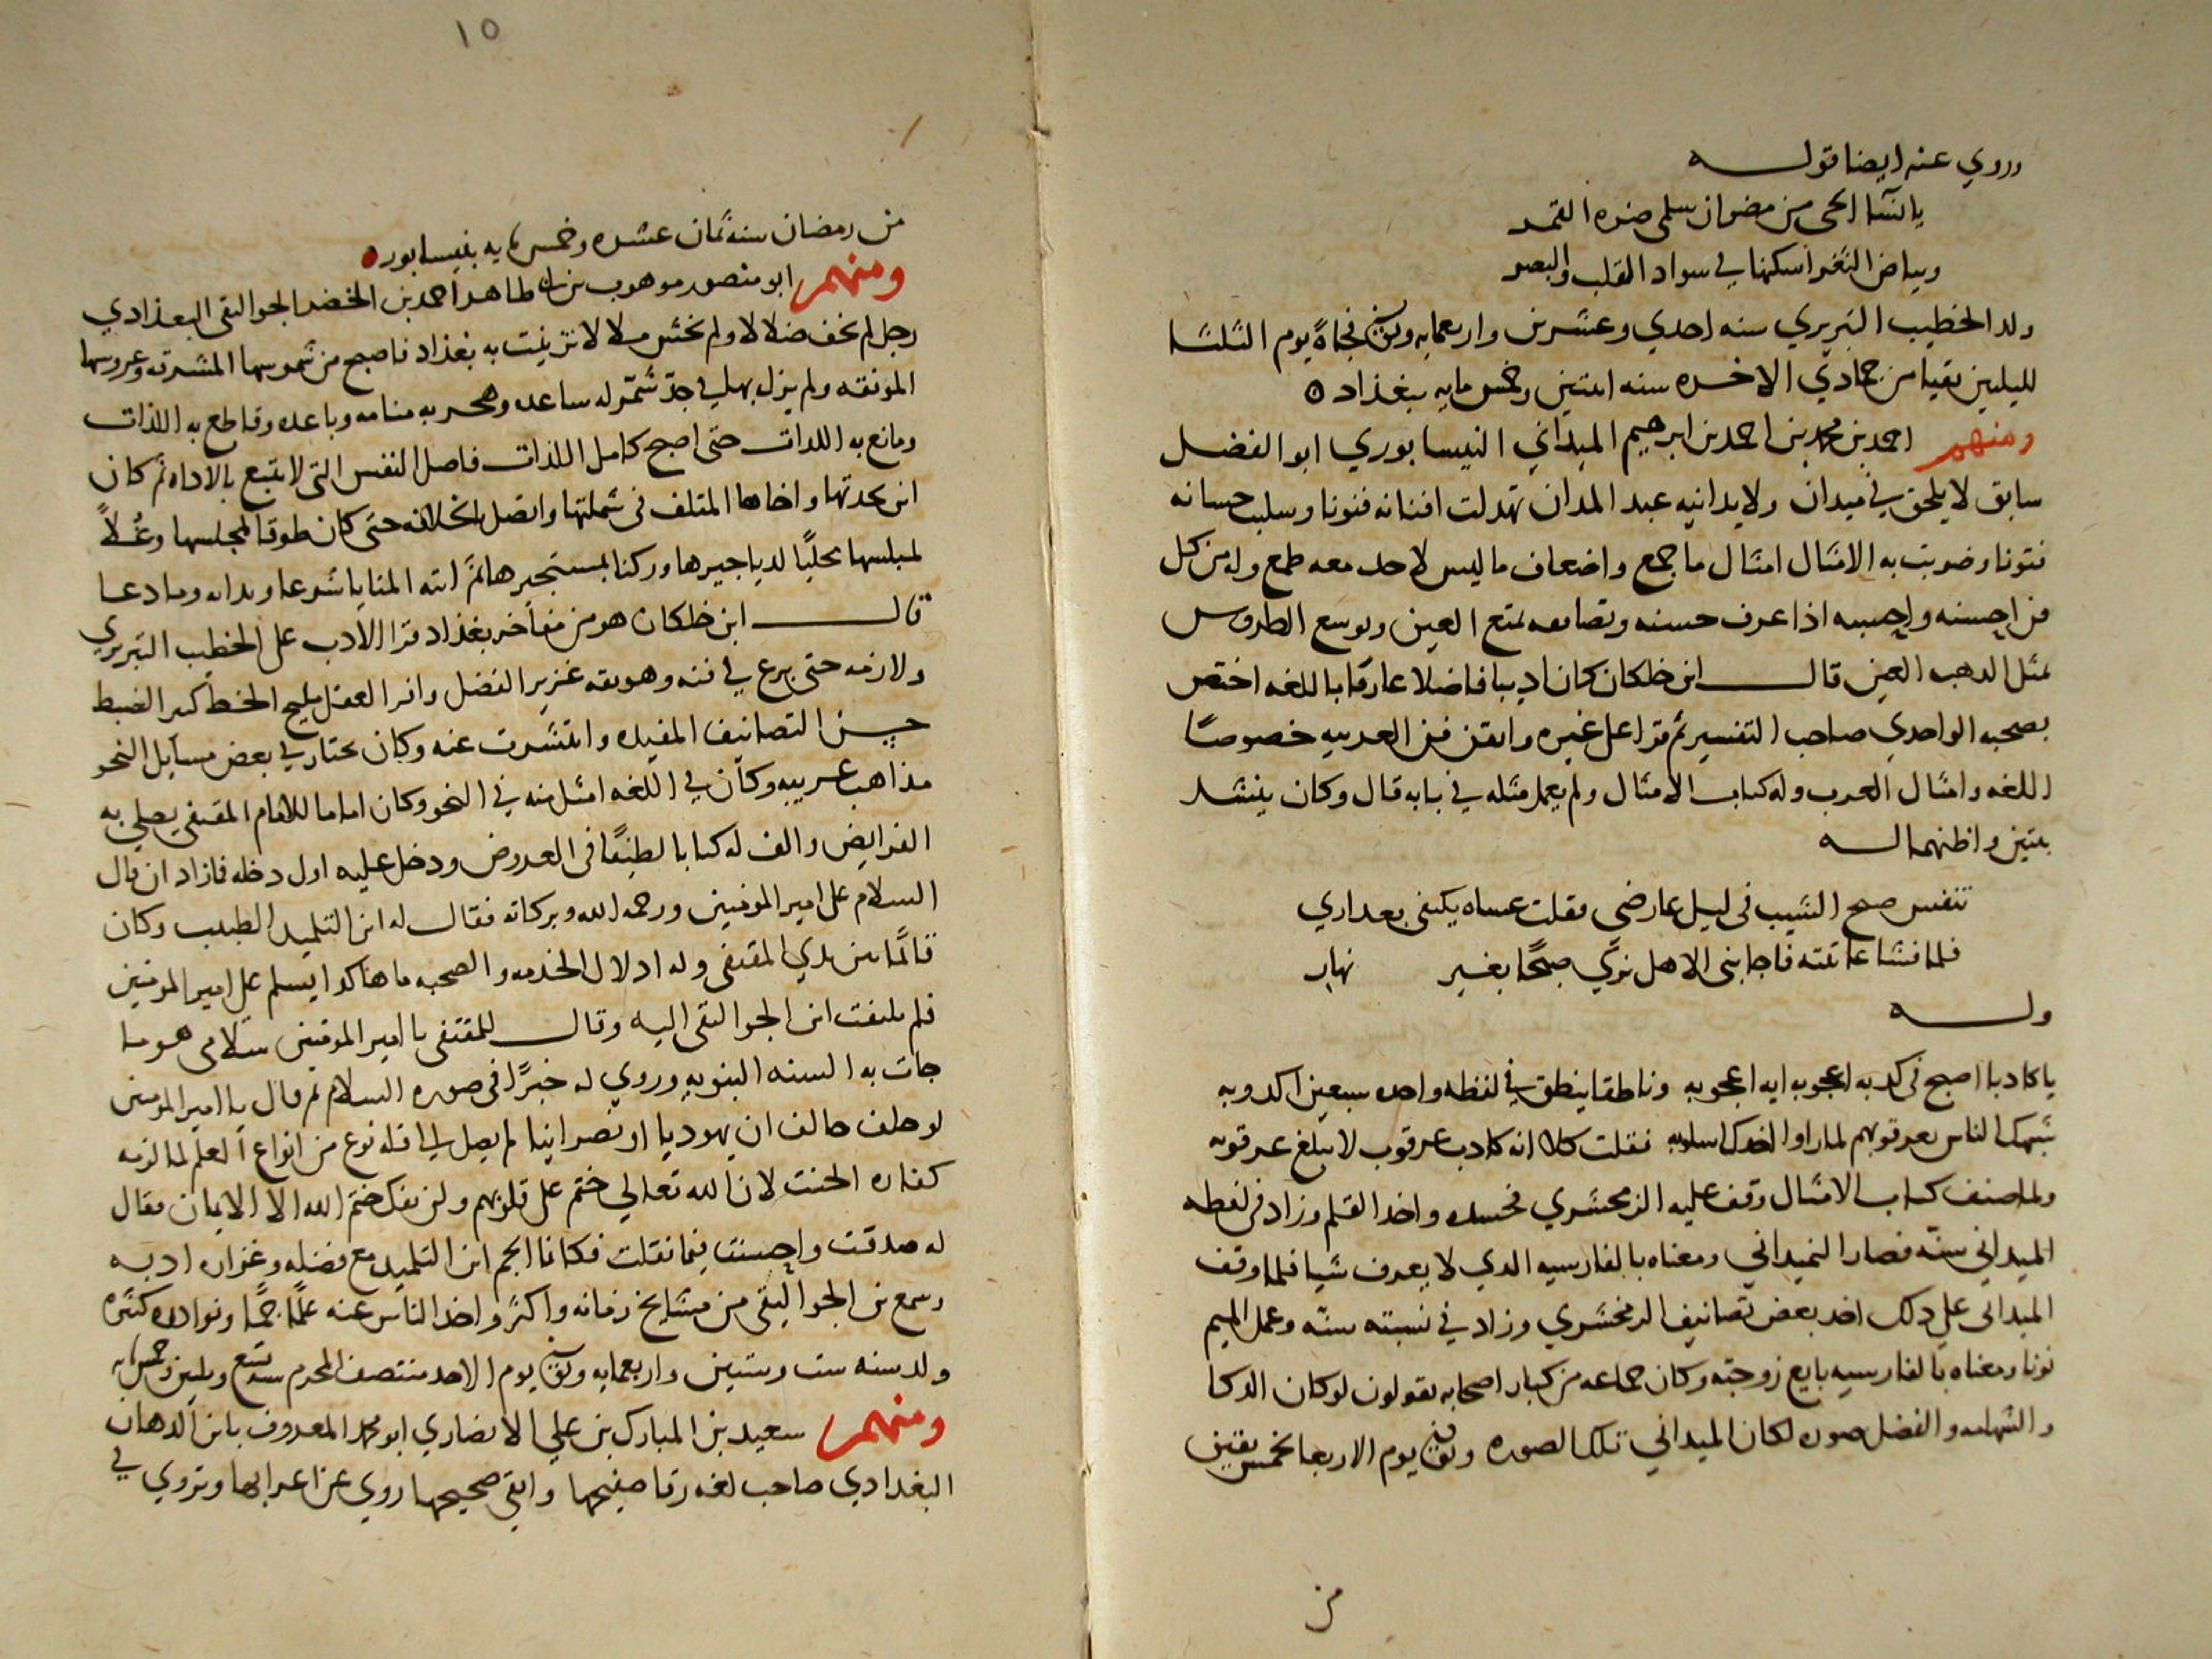 وروي عنه ايضا قوله
يا نسا الحي من مضران سلمى ضره القمر
وبياض الثغر اسكنها في سواد القلب والبصر
ولد الخطيب التبريزي سنه احدي وعشرين واربعمايه وتوفي فجاةً يوم الثلثا
لليلتين بقيا من جمادي الاخره سنه اثنتين وخمس مايه ببغداد ٥
ومنهم احمد بن محمد بن احمد بن ابرهيم الميداني النيسابوري ابو الفضل
سابق لا يلحق في ميدان ولا يدانيه عبد المدان تهدلت افنانه فنونا وسلب حسانه
فتونا وضربت به الامثال امثال ما جمع واضعاف ما ليس لاحد معه طمع وله من كل
فن احسنه واحسبه اذا عرف حسنه وتصانيفه تمتع العين وتوسع الطروس
بمثل الذهب العين قال ابن خلكان كان اديبا فاضلا عارفا باللغه اختص
بصحبه الواحدي صاحب التفسير ثم قرا على غيره واتقن فن العربيه خصوصًا
اللغه وامثال العرب وله كتاب الامثال ولم يعمل مثله في بابه قال وكان ينشد
بيتين واظنهما له
تنفس صبح الشيب في ليل عارضي فقلت عساه يكتفي بعذاري
فلما فشا عاتبته فاجابني الا هل تري صبحًا بغير نهار
وله
يا كاذبا اصبح في كذبه اعجوبه ايه اعجوبه وناطقا ينطق في لفظه واحده سبعين اكذوبه
شبهك الناس بعرقوبهم لما راوا اخذك اسلوبه فقلت كلا انه كاذب عرقوب لا يبلغ عرقوبه
ولما صنف كتاب الامثال وقف عليه الزمخشري فحسده واخذ القلم وزاد في لفظه
الميداني سنّه فصار النميداني ومعناه بالفارسيه الذي لا يعرف شيا فلما وقف
الميداني علي ذلك اخذ بعض تصانيف الزمخشري وزاد في نسبته سنّه وعمل الميم
نونا ومعناه بالفارسيه بايع زوجته وكان جماعه من كبار اصحابه يقولون لو كان الذكا
والشهامه والفضل صوره لكان الميداني تلك الصوره وتوفي يوم الاربعا لخمس بقين
من
١٥
من رمضان سنه ثمان عشره وخمس مايه بنيسابور ٥
ومنهم ابو منصور موهوب بن ابي طاهر احمد بن الخضر الجواليقي البغدادي
رجل لم يخف ضلالا ولم يخش ملالا تزينت به بغداد فاصبح من شموسها المشرقه وعروسها
المونقه ولم يزل بهلي في جدّ شمّر له ساعده وهجر به منامه وباعده وقاطع به اللذات
ومانع به اللدات حتى اصبح كامل اللذات فاصل النفس التي لا تتبع بالاداه ثم كان
ابن بجدتها واخاها المتلف في شملتها واتصل بالخلافه حتى كان طوقا لمجلسها وعُلاً
لمبلسها مجلبًا لدياجيرها وركنا لمستجيرها ثم اتته المنايا شرعا وبدات وما دعا
قال ابن خلكان هو من مفاخر بغداد قرا الادب على الخطيب التبريزي
ولازمه حتى برع في فنه وهو ثقه غزير الفضل وافر العقل مليح الخط كثير الضبط
حسن التصانيف المفيده وانتشرت عنه وكان يختار في بعض مسايل النحو
مذاهب غريبه وكان في اللغه امثل منه في النحو وكان اماما للامام المقتفي يصلي به
الفرايض والف له كتابا لطيفًا في العروض ودخل عليه اول دخله فمازاد ان قال
السلام على امير المومنين ورحمه الله وبركاته فقال له ابن التلميذ الطبيب وكان
قائمًا بين يدي المقتفي وله ادلال الخدمه والصحبه ما هاكذا يسلم على امير المومنين
فلم يلتفت ابن الجواليقي اليه وقال للمقتفي يا امير المومنين سلامي هو ما
جات به السنه النبويه وروي له خبرًا في صوره السلام ثم قال يا امير المومنين
لو حلف حالف ان يهوديا او نصرانيا لم يصل الي قلبه نوع من انواع العلم لما لزمه
كفاره الحنث لان الله تعالي ختم على قلوبهم ولن يفك ختم الله الا الايمان فقال
له صدقت واحسنت فيما فعلت فكانما الجم ابن التلميذ مع فضله وغزاره ادبه
وسمع بن الجواليقي من مشايخ زمانه واكثر واخذ الناس عنه علمًا جمًا ونوادره كثيره
ولد سنه ست وستين واربعمايه وتوفي يوم الاحد منتصف المحرم سنه تسع وثلثين وخمس مايه
ومنهم سعيد بن المبارك بن علي الانصاري ابو محمد المعروف بابن الدهان
البغدادي صاحب لغه رقا صفيحها وانقى صحيحها روي عن اعرابها وتروي في